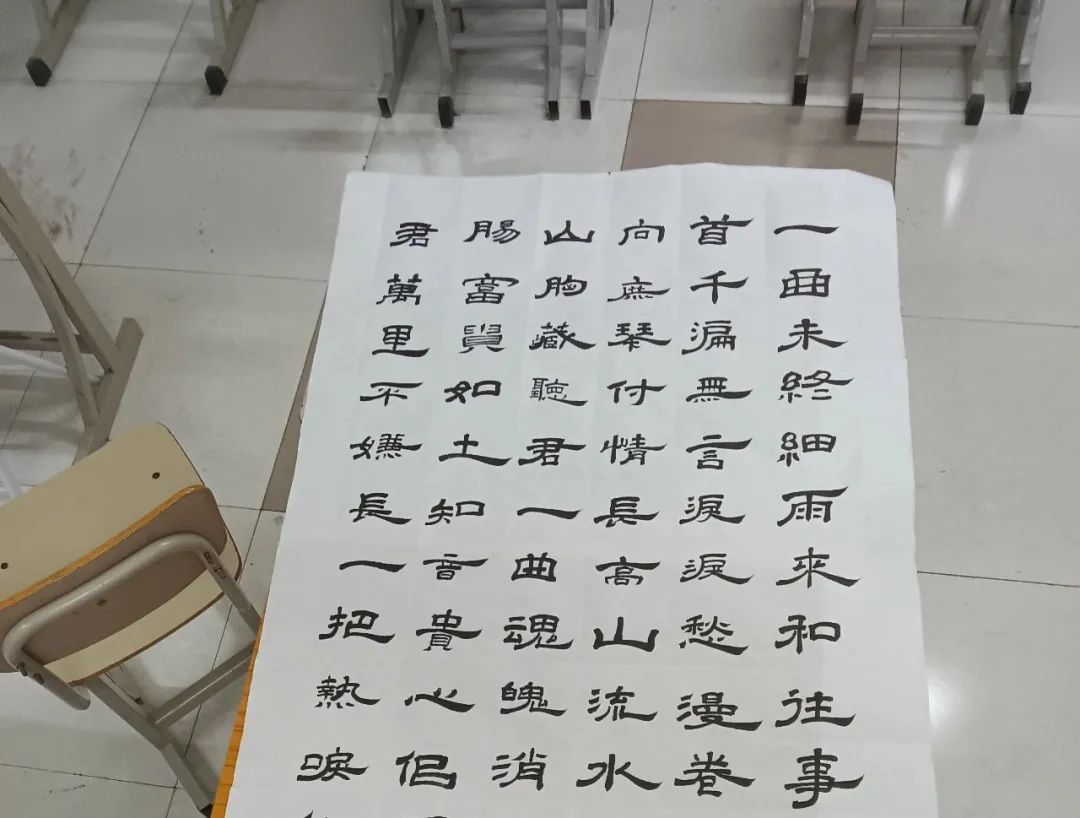 一曲未終細雨來和往事
首千徧無言淚淚愁漫卷
向庶琴付情長高山流水
山胸藏聽君一曲魂魄消
腸富貴如土知音貴心侶
君萬里不嫌長一把熱唳